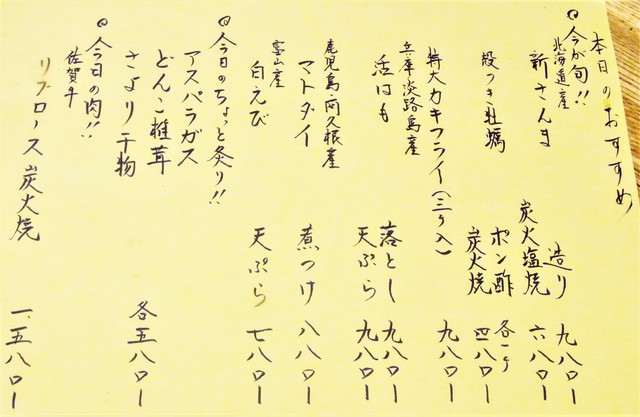 本日のおすすめ
◎今が旬!!
北海道産
新さんま 造り 九八〇ー
炭火塩焼 六八〇ー
殻つき牡蠣 ポン酢 各一ヶ
炭火焼 四八〇ー
特大カキフライ(三ヶ入) 九八〇ー
兵庫淡路島産
活はも 落とし 九八〇ー
天ぷら 九八〇ー
鹿児島阿久根産
マトダイ 煮つけ 八八〇ー
富山産
白えび 天ぷら 七八〇ー
◎今日のちょっと炙り!!
アスパラガス
どんこ椎茸 各五八〇ー
さより干物
◎今日の肉!!
佐賀牛
リブロース炭火焼 一、五八〇ー